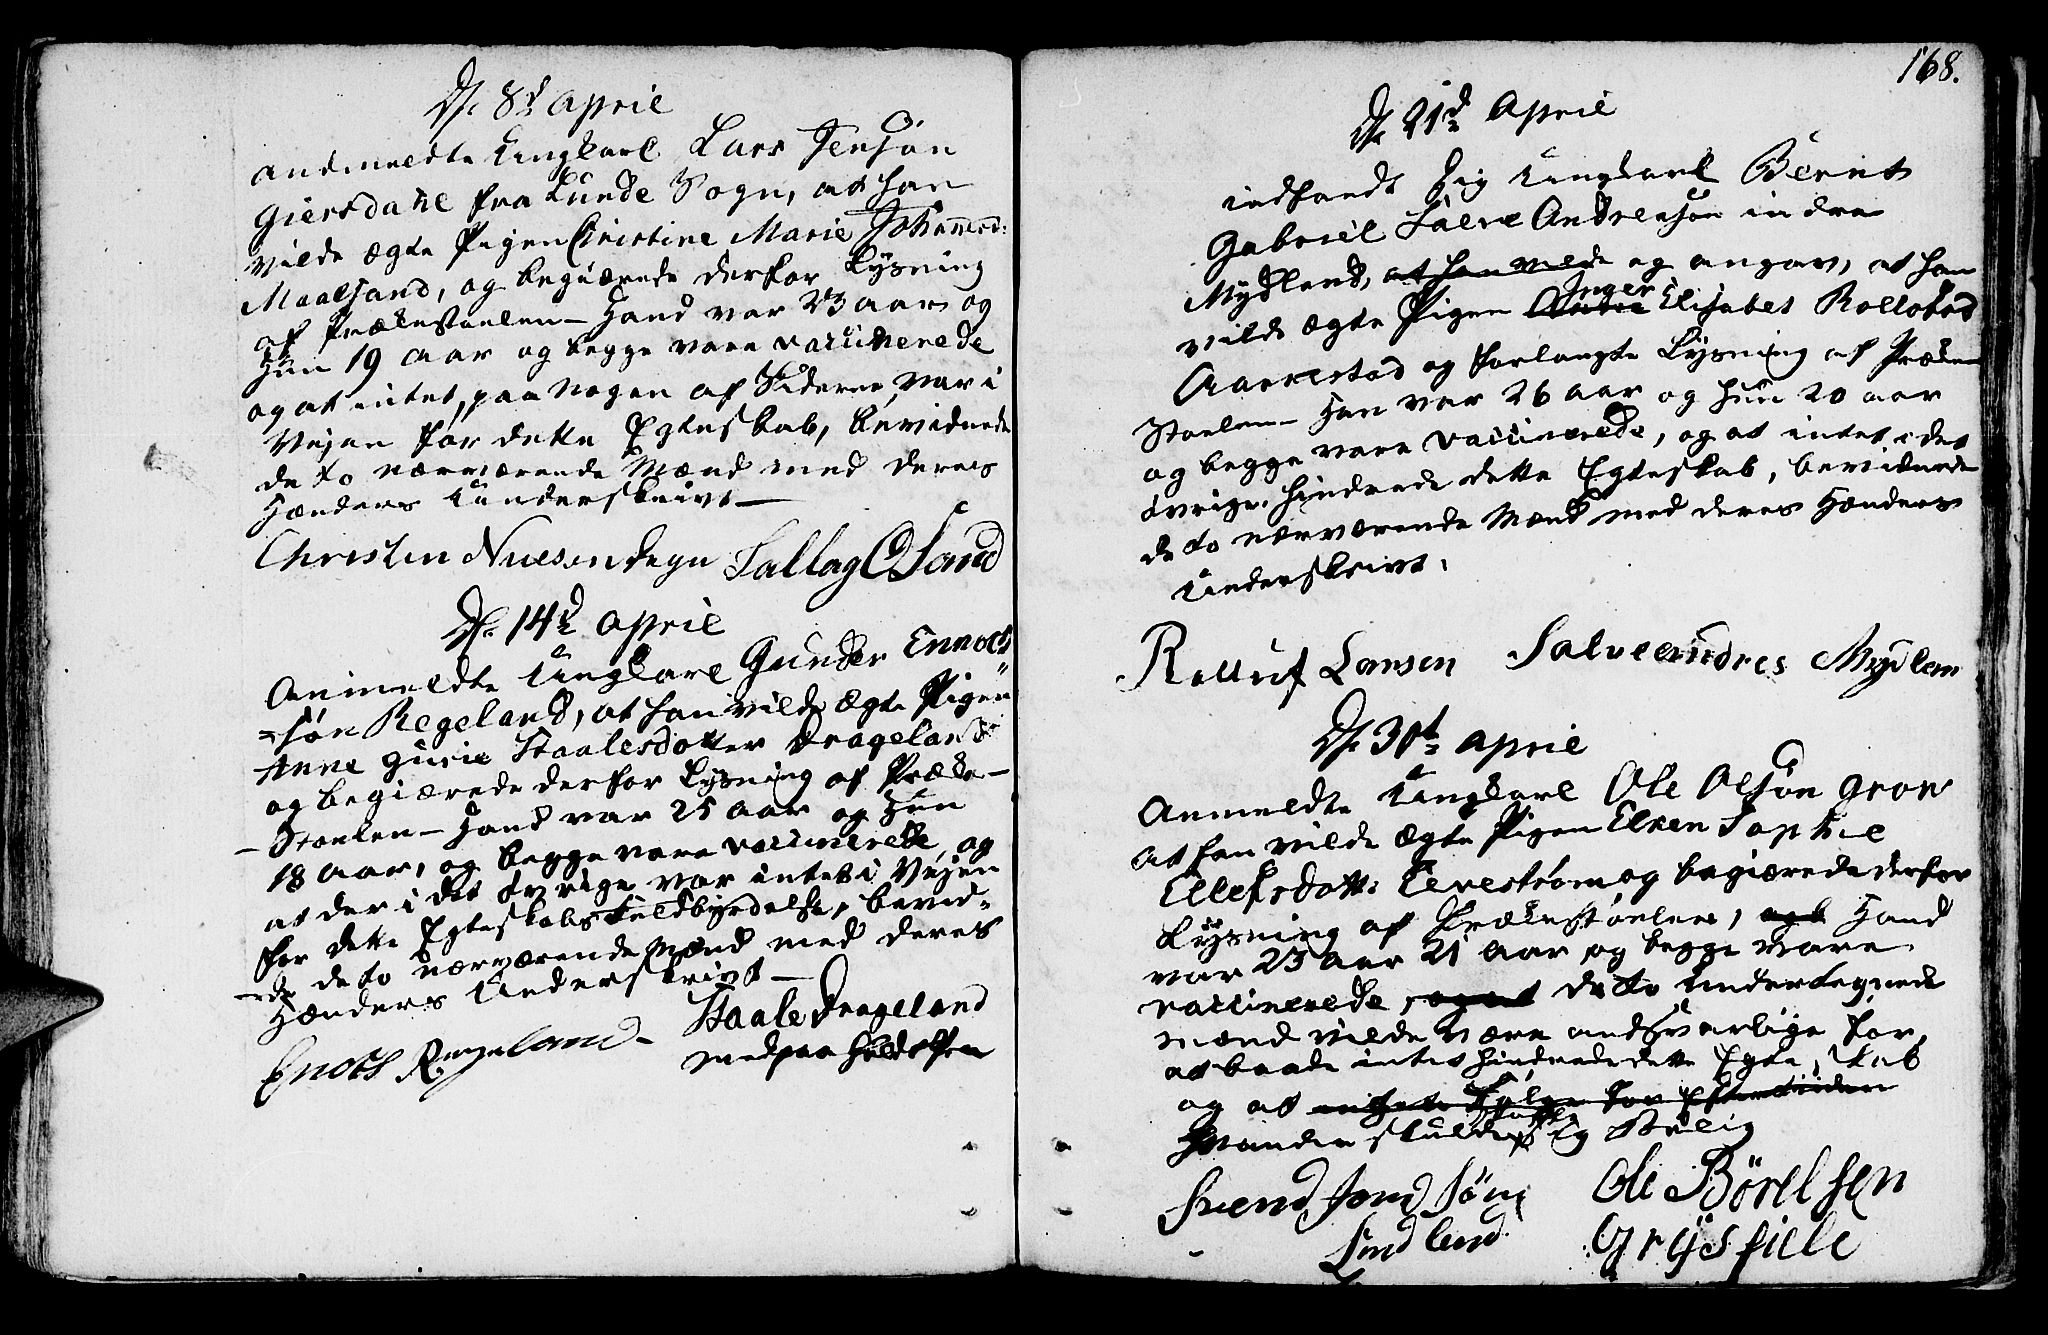 D. 8d April
andmeldte Ungkarl Lars Jensøn
Giersdahl fra Lunde Sogn, at han
vilde ægte Pigen Christine Marie
Maalsand, og begiærede derfor Lysning
af Prækestoelen – Hand var 23 aar og
Hun 19 aar og begge vare vaccinerede
og at intet, paa nogen af Siderne, var i
Vejen for dette Egteskab, bevidnede
de to nærværende Mænd med deres
Hænders Underskrivt –
Christen Degn Sallag O Sand
D. 14d April
Anmeldte Ungkarl Gunder Ennoch
=søn Regeland, at han vilde ægte Pigen
Anne Gurie Staalesdotter Drageland
og begiærede derfor Lysning af Præke-
-Stoelen – Hand var 25 aar og Hun
18 aar, og begge vare vaccinerede, og
at der i det øvrige var intet i Vejen
for dette Egteskabs Fuldbyrdelse, bevid-
-ede de to nærværende Mænd med deres
Hænders Underskrivt –
Enoch Regeland – Staale Drageland
med paaholden
168.
D. 21d April
indfandt sig Ungkarl Bernt
Gabriel Salve Andresøn indre
Mydland, at han vilde og angav, at han
vilde ægte Pigen Inger Elisabet
Aarrestad og forlangte Lysning af Præke
Stoelen – Han var 26 aar og hun 20 aar
og begge vare vaccinerede, og at intet i det
øvrige hindrede dette Egteskab, bevidnede
de to nærværende Mænd med deres Hænders
Underskrivt.
Rolluf Larsen Salve Andres Mydlan
D. 30t April
Anmeldte Ungkarl Ole Olsøn Grov
at han vilde ægte Pigen Elen Sophie
Ellefsdott: og begiærede derfor
Lysning af Prækestoelen, Hand
var 23 aar 21 aar, og begge vare
vaccinerede, og at de to Undertegnede
Mænd vilde være andsvarlige for,
at baade intet hindrede dette Egteskab
og at
skulde Bølig
Svend Søn Ole Börelsen
Grøsfield